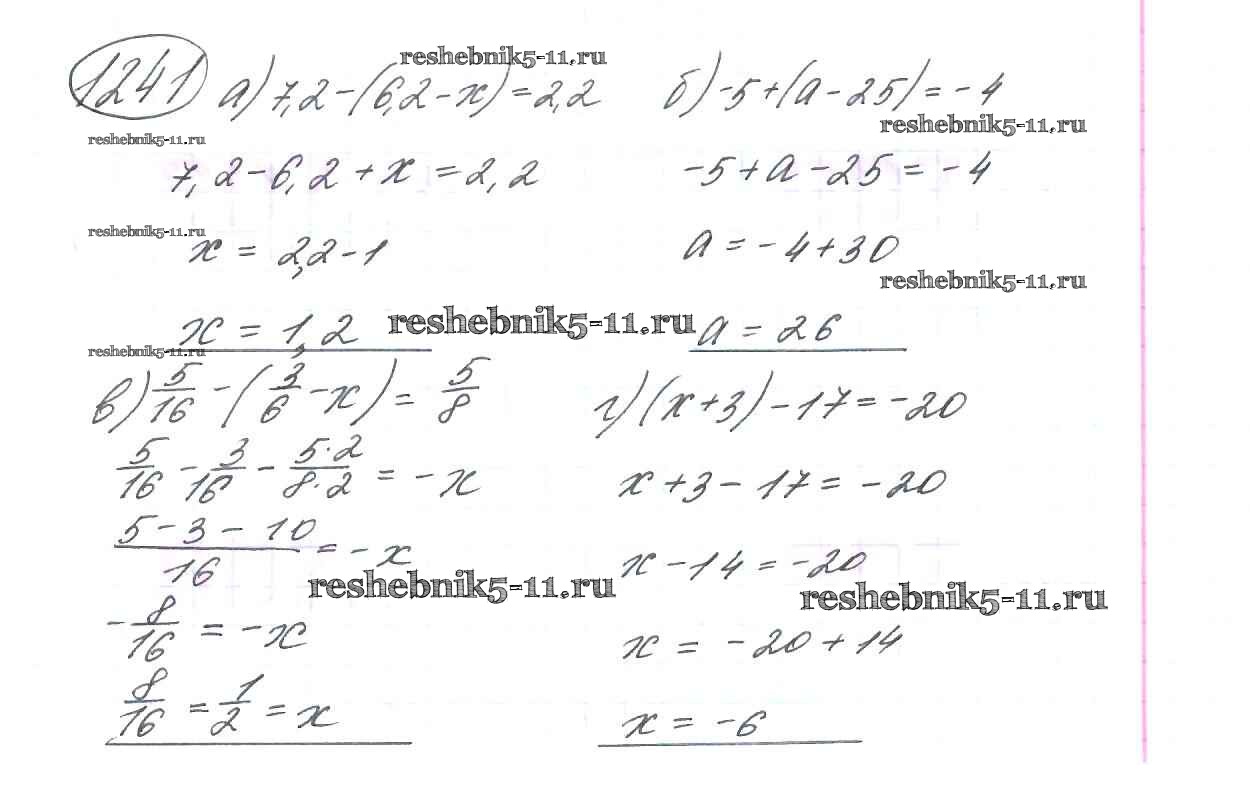 1241 а) 7,2-(6,2-x)=2,2 б) -5+(a-25)=-4
reshebnik5-11.ru
reshebnik5-11.ru
reshebnik5-11.ru
7,2-6,2+x=2,2 -5+a-25=-4
reshebnik5-11.ru
x = 2,2-1 a=-4+30
reshebnik5-11.ru
x = 1,2 reshebnik5-11.ru a = 26
reshebnik5-11.ru
в) 5/16 - (3/6 - x) = 5/8 г) (x+3)-17=-20
5/16 - 3/16 - 5·2/8·2 = -x x+3-17=-20
5-3-10/16 = -x x-14=-20
reshebnik5-11.ru reshebnik5-11.ru
-8/16 = -x x = -20+14
8/16 = 1/2 = x x = -6